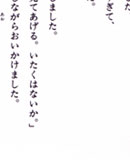 た
ぎて、
しました。
てあげる。いたくはないか。」
ながらおいかけました。